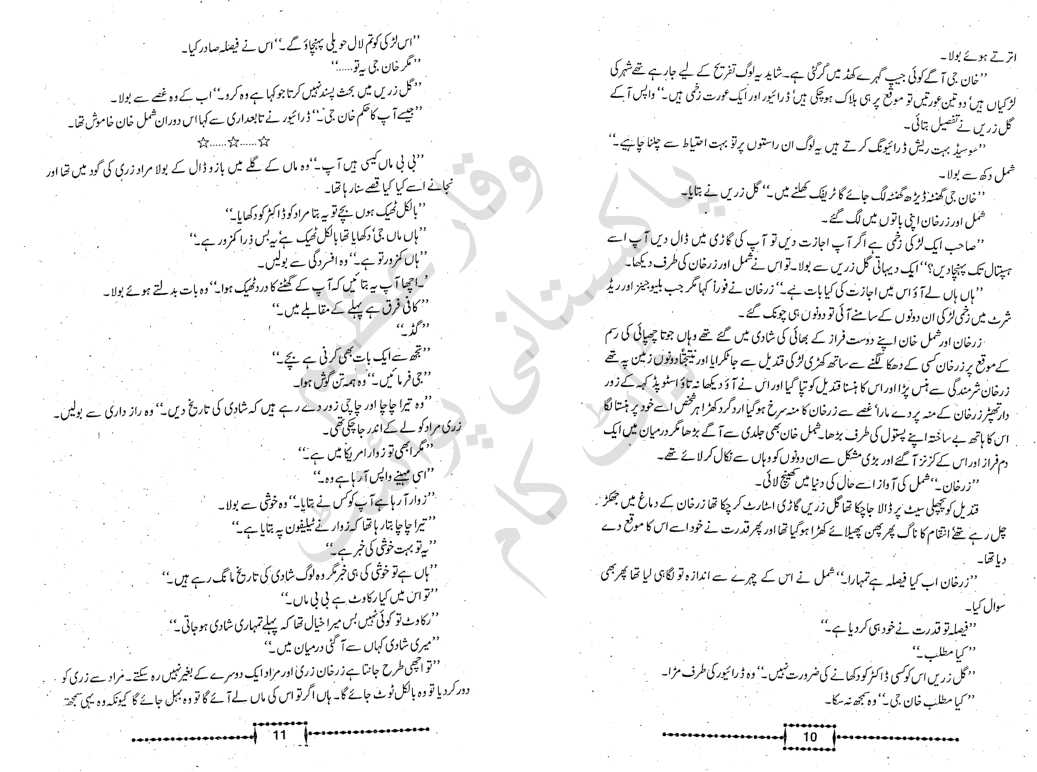 اترتے ہوئے بولا۔
’’خان جی آگے کوئی جیپ گہرے کھڈ میں گر گئی ہے۔ شاید یہ لوگ تفریح کے لیے جا رہے تھے شہر کی
لڑکیاں ہیں‘ دو تین عورتیں تو موقع پر ہی ہلاک ہو چکی ہیں‘ ڈرائیور اور ایک عورت زخمی ہیں۔‘‘ واپس آ کے
گل زریں نے تفصیل بتائی۔
’’سو سیڈ بہت ریش ڈرائیونگ کرتے ہیں یہ لوگ ان راستوں پر تو بہت احتیاط سے چلنا چاہیے۔‘‘
شمل دکھ سے بولا۔
’’خان جی گھنٹہ ڈیڑھ گھنٹہ لگ جائے گا ٹریفک کھلنے میں۔‘‘ گل زریں نے بتایا۔
شمل اور زرخان اپنی باتوں میں لگ گئے۔
’’صاحب ایک لڑکی زخمی ہے اگر آپ اجازت دیں تو آپ کی گاڑی میں ڈال دیں آپ اسے
ہسپتال تک پہنچا دیں؟‘‘ ایک دیہاتی گل زریں سے بولا۔ تو اس نے شمل اور زرخان کی طرف دیکھا۔
’’ہاں ہاں لے آؤ اس میں اجازت کی کیا بات ہے۔‘‘ زرخان نے فوراً کہا مگر جب بلیو جینز اور ریڈ
شرٹ میں زخمی لڑکی ان دونوں کے سامنے آئی تو دونوں ہی چونک گئے۔
زرخان اور شمل خان اپنے دوست فراز کے بھائی کی شادی میں گئے تھے وہاں جوتا چھپائی کی رسم
کے موقع پر زرخان کسی کے دھکا لگنے سے ساتھ کھڑی لڑکی قندیل سے جا ٹکرایا اور نتیجتاً دونوں زمین پہ تھے
زرخان شرمندگی سے ہنس پڑا اور اس کا ہنسنا قندیل کو تپا گیا اور اس نے آؤ دیکھا نہ تاؤ اسٹوپڈ کہہ کے زور
دار تھپڑ زرخان کے منہ پر دے مارا‘ غصے سے زرخان کا منہ سرخ ہو گیا اردگرد کھڑا ہر شخص اسے خود پر ہنستا لگا
اس کا ہاتھ بے ساختہ اپنے پستول کی طرف بڑھا۔ شمل خان بھی جلدی سے آگے بڑھا مگر درمیان میں ایک
دم فراز اور اس کے کزنز آ گئے اور بڑی مشکل سے ان دونوں کو وہاں سے نکال کر لائے تھے۔
’’زرخان۔‘‘ شمل کی آواز اسے حال کی دنیا میں کھینچ لائی۔
قندیل کو پچھلی سیٹ پر ڈالا جا چکا تھا گل زریں گاڑی اسٹارٹ کر چکا تھا زرخان کے دماغ میں جھکڑ
چل رہے تھے‘ انتقام کا ناگ پھر پھن پھیلائے کھڑا ہو گیا تھا اور پھر قدرت نے خود اسے اس کا موقع دے
دیا تھا۔
’’زرخان اب کیا فیصلہ ہے تمہارا۔‘‘ شمل نے اس کے چہرے سے اندازہ تو لگا ہی لیا تھا پھر بھی
سوال کیا۔
’’فیصلہ تو قدرت نے خود ہی کر دیا ہے۔‘‘
’’کیا مطلب۔‘‘
’’گل زریں اس کو کسی ڈاکٹر کو دکھانے کی ضرورت نہیں۔‘‘ وہ ڈرائیور کی طرف مڑا۔
’’کیا مطلب خان جی۔‘‘ وہ سمجھ نہ سکا۔
10
’’اس لڑکی کو تم لال حویلی پہنچاؤ گے۔‘‘ اس نے فیصلہ صادر کیا۔
’’مگر خان جی یہ تو……‘‘
’’گل زریں میں بحث پسند نہیں کرتا جو کہا ہے وہ کرو۔‘‘ اب کے وہ غصے سے بولا۔
’’جیسے آپ کا حکم خان جی۔‘‘ ڈرائیور نے تابعداری سے کہا اس دوران شمل خان خاموش تھا۔
☆……☆……☆
’’بی بی ماں کیسی ہیں آپ۔‘‘ وہ ماں کے گلے میں بازو ڈال کے بولا مراد زری کی گود میں تھا اور
نجانے اسے کیا کیا قصے سنا رہا تھا۔
’’بالکل ٹھیک ہوں بچے تو یہ بتا مراد کو ڈاکٹر کو دکھایا۔‘‘
’’ہاں ماں جی‘ دکھایا تھا بالکل ٹھیک ہے‘ یہ بس ذرا کمزور ہے۔‘‘
’’ہاں کمزور تو ہے۔‘‘ وہ افسردگی سے بولیں۔
’’اچھا آپ یہ بتائیں کہ آپ کے گھٹنے کا درد ٹھیک ہوا۔‘‘ وہ بات بدلتے ہوئے بولا۔
’’کافی فرق ہے پہلے کے مقابلے میں۔‘‘
’’گڈ۔‘‘
’’تجھ سے ایک بات بھی کرنی ہے بچے۔‘‘
’’جی فرمائیں۔‘‘ وہ ہمہ تن گوش ہوا۔
’’وہ تیرا چاچا اور چاچی زور دے رہے ہیں کہ شادی کی تاریخ دیں۔‘‘ وہ راز داری سے بولیں۔
زری مراد کو لے کے اندر جا چکی تھی۔
’’مگر ابھی تو زوار امریکا میں ہے۔‘‘
’’اسی مہینے واپس آ رہا ہے وہ۔‘‘
’’زوار آ رہا ہے آپ کو کس نے بتایا۔‘‘ وہ خوشی سے بولا۔
’’تیرا چاچا بتا رہا تھا کہ زوار نے ٹیلیفون پہ بتایا ہے۔‘‘
’’یہ تو بہت خوشی کی خبر ہے۔‘‘
’’ہاں ہے تو خوشی کی ہی خبر مگر وہ لوگ شادی کی تاریخ مانگ رہے ہیں۔‘‘
’’تو اس میں کیا رکاوٹ ہے بی بی ماں۔‘‘
’’رکاوٹ تو کوئی نہیں بس میرا خیال تھا کہ پہلے تمہاری شادی ہو جاتی۔‘‘
’’میری شادی کہاں سے آ گئی درمیان میں۔‘‘
’’تو اچھی طرح جانتا ہے زرخان زری اور مراد ایک دوسرے کے بغیر نہیں رہ سکتے۔ مراد سے زری کو
دور کر دیا تو وہ بالکل ٹوٹ جائے گا۔ ہاں اگر تو اس کی ماں لے آئے گا تو وہ بہل جائے گا کیونکہ وہ یہی سمجھتا
11
پاکستانی پوائنٹ ڈاٹ کام